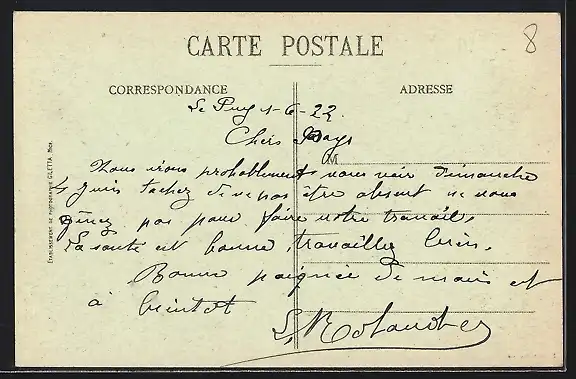 CARTE POSTALE
8
CORRESPONDANCE
ADRESSE
Le Puy 1-6-22
Chers Pays
M
Nous irons probablement vous voir dimanche
4 juin tachez de ne pas être absent ne vous
gênez pas pour faire votre travail,
la santé est bonne, travaillez bien.
Bonne poignée de main et
à bientot
ETABLISSEMENT DE PHOTOGRAPHIE GILETTA, Nice.